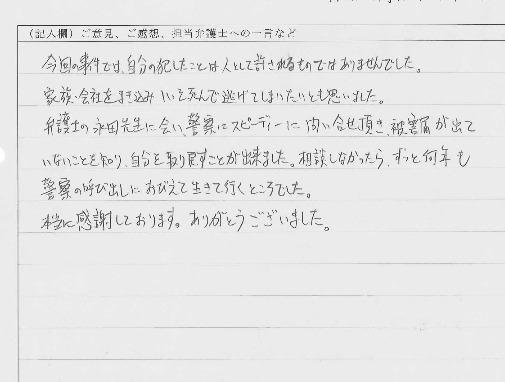 （記入欄）ご意見、ご感想、担当弁護士への一言など
今回の事件では、自分の犯したことは人として許されるものではありませんでした。
家族・会社をまき込み いっそ死んで逃げてしまいたいとも思いました。
弁護士の永田先生に会い、警察にスピーディーに問い合せ頂き、被害届が出て
いないことを知り、自分を取り戻すことが出来ました。相談しなかったら、ずっと何年も
警察の呼び出しにおびえて生きて行くところでした。
本当に感謝しております。ありがとうございました。